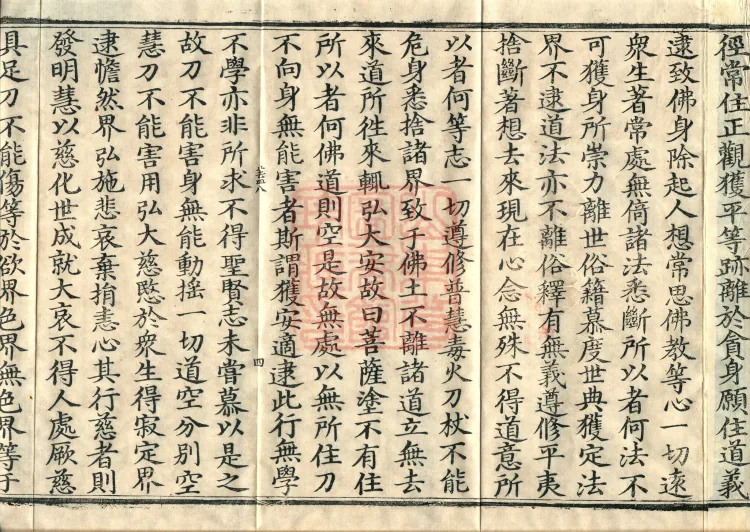 徑常住正觀獲平等跡離於貪身願住道義
逮致佛身除起人想常思佛教等心一切遠
衆生著常處無倚諸法悉斷所以者何法不
可獲身所崇力離世俗籍慕度世典獲定法
界不逮道法亦不離俗釋有無義遵修平夷
捨斷著想去來現在心念無殊不得道意所
以者何等志一切遵修普慧毒火刀杖不能
危身悉捨諸界致于佛土不離諸道立無去
來道所徃來輒弘大安故曰菩薩塗不有住
所以者何佛道則空是故無處以無所住刀
不向身無能害者斯謂獲安適逮此行無學
四
不學亦非所求不得聖賢志未嘗慕以是之
故刀不能害身無能動搖一切道空分別空
慧刀不能害用弘大慈愍於衆生得寂定界
逮憺然界弘施悲哀棄捐恚心其行慈者則
發明慧以慈化世成就大哀不得人處厥慈
具足刀不能傷等於欲界色界無色界等于